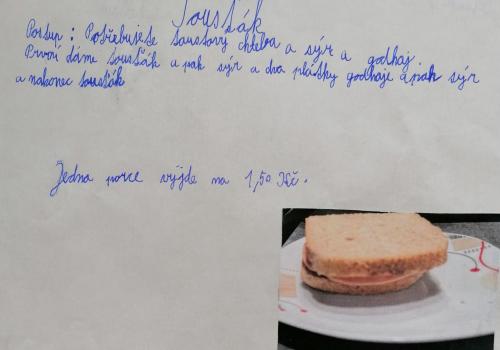 Tousťák
Postup: Potřebujete toustový chleba a sýr a godhaj.
První dáme tousťák a pak sýr a dva plátky godhaje a pak sýr
a nakonec tousťák
Jedna porce vyjde na 1,50 Kč.